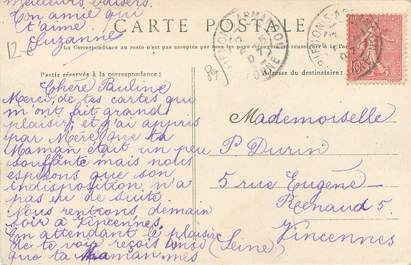 meilleurs baisers.
Ton amie qui
t'aime
Suzanne
12 €
CARTE POSTALE
La Correspondance au recto n'est pas acceptée par tous les pays étrangers
Partie réservée à la correspondance:
Adresse du destinataire:
89
Chère Pauline
Merci de tes cartes qui
m'ont fait grand
plaisir, et j'ai appris
par Mère que ta
Maman était un peu
souffrante mais nous
espérons que son
indisposition n'a
pas eu de suite.
Nous rentrons demain
soir à Vincennes.
En attendant le plaisir
de te voir reçois ainsi
que ta maman mes
Mademoiselle
P. Durin
5 rue Eugène
Renaud 5.
Vincennes
(Seine)